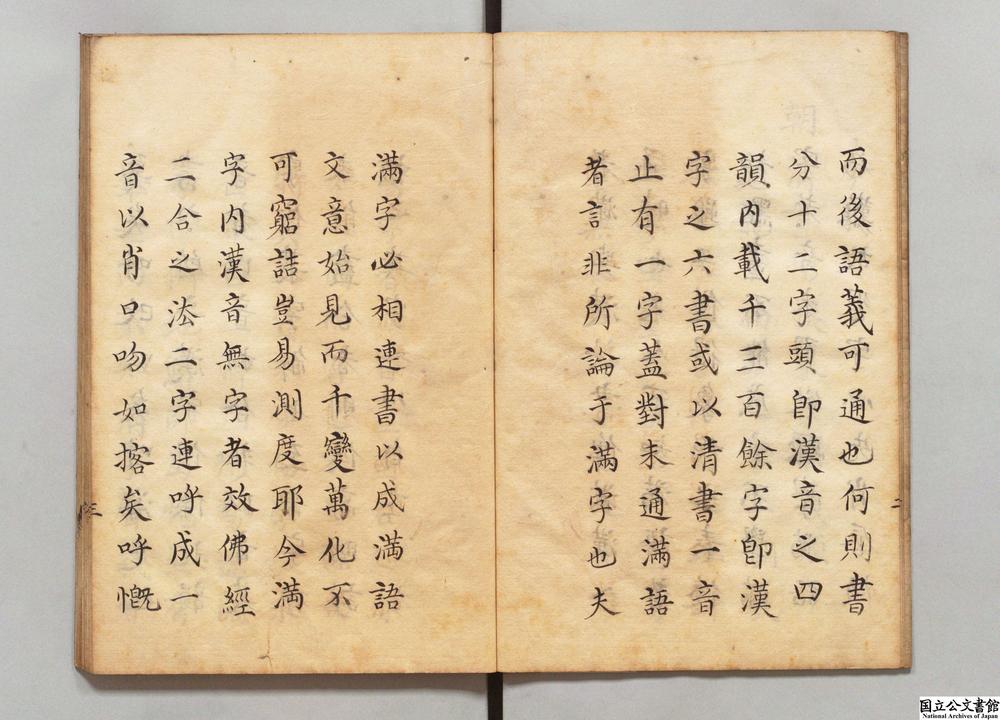 而後語義可通也何則書
分十二字頭即漢音之四
韻内載千三百餘字即漢
字之六書或以清書一音
止有一字蓋對未通滿語
者言非所論于滿字也夫
滿字必相連書以成滿語
文意始見而千變萬化不
可窮詰豈易測度耶今滿
字内漢音無字者效佛經
二合之法二字連呼成一
音以肖口吻如揢矣呼慨
二
三
国立公文書館
National Archives of Japan